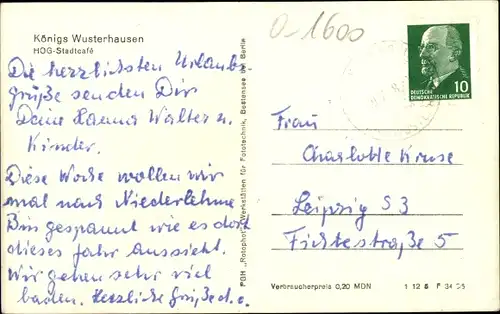 Königs Wusterhausen
HOG-Stadtcafé
Die herzlichsten Urlaubs-
grüße senden Dir
Deine Hanna Walter u.
Kinder.
Diese Woche wollen wir
mal nach Niederlehme
Bin gespannt wie es dort
dieses Jahr aussieht.
Wir gehen sehr viel
baden. Herzliche Grüße d. o.
PGH „Rotophot" Werkstätten für Fototechnik, Bestensee bei Berlin
0-1600
10
DEUTSCHE
DEMOKRATISCHE REPUBLIK
Frau
Charlotte Kruse
Leipzig S 3
Fichtestraße 5
Verbraucherpreis 0,20 MDN
1 12 8 F 34